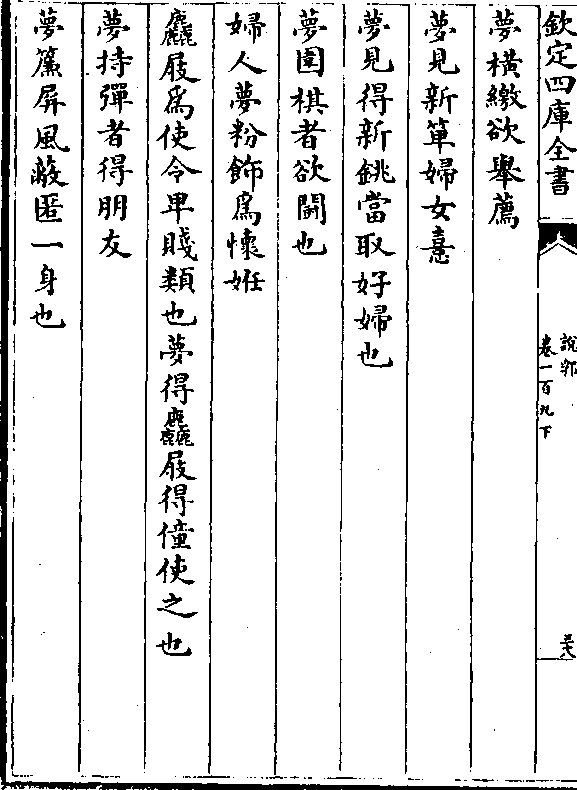 欽定四庫全書
說郛
卷一百九下
三十八
夢橫繳欲舉薦
夢見新箄婦女憙
夢見得新銚當取好婦也
夢圍棋者欲鬭也
婦人夢粉飾爲懷姙
麤屐爲使令卑賤類也夢得麤屐得僮使之也
夢持彈者得朋友
夢簾屏風蔽匿一身也